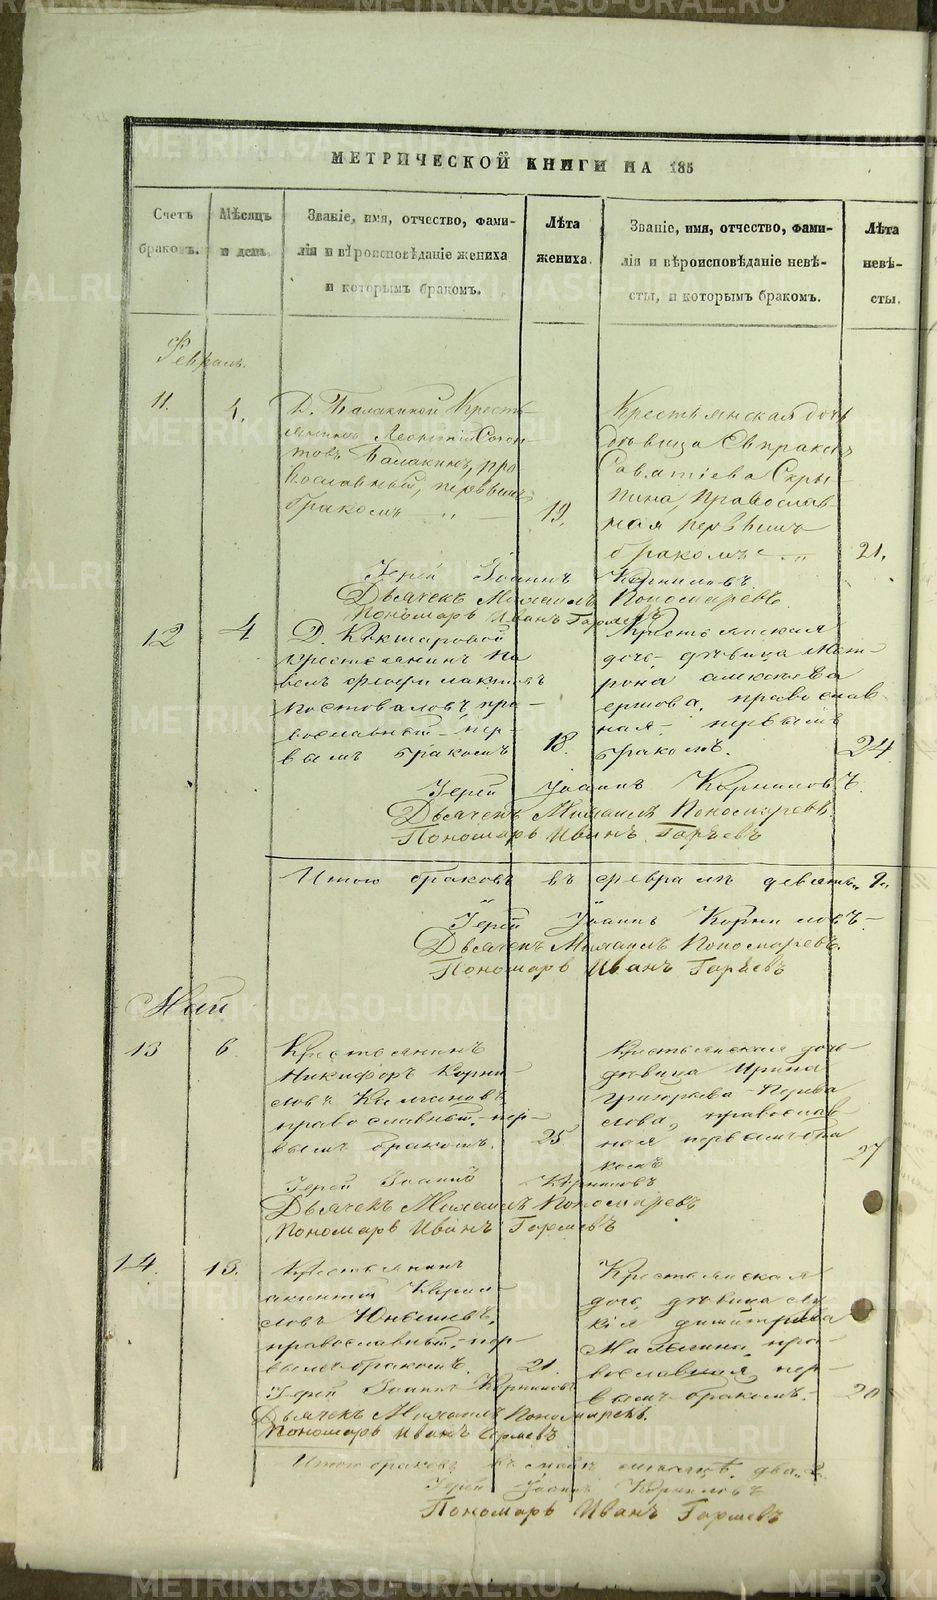 METRIKI.GASO-URAL.RU
МЕТРИЧЕСКОЙ КНИГИ НА 185
Счетъ браковъ.
Мѣсяцъ и день.
Званіе, имя, отчество, фами-
лія и вѣроисповѣданіе жениха
и которымъ бракомъ.
Лѣта
жениха.
Званіе, имя, отчество, фами-
лія и вѣроисповѣданіе невѣ-
сты, и которымъ бракомъ.
Лѣта
невѣ-
сты.
Февраль.
11.
Д. Балакиной Кресть-
янинъ
Балакинъ, пра
вославный, первымъ
бракомъ
19.
Крестьянская дочь
дѣвица Евпраксія
Савватіева Скры-
пина, Православ-
ная первымъ
бракомъ
21.
Іерей Іоаннъ Корниловъ.
Дьячекъ Михаилъ Пономаревъ.
Пономарь Иванъ
12
4
Д. Кокшаровой
крестьянинъ Па
велъ
Постоваловъ, пра-
вославный, пер-
вымъ бракомъ
18.
Крестьянская
дочь дѣвица Мат-
рона
православ
ная, первымъ
бракомъ.
24
Іерей Іоаннъ Корниловъ.
Дьячекъ Михаилъ Пономаревъ.
Пономарь Иванъ
Итого браковъ въ февралѣ девять, 9.
Іерей Іоаннъ Корниловъ
Дьячекъ Михаилъ Пономаревъ.
Пономарь Иванъ
Май
13
6
Крестьянинъ
Никифоръ Корни
ловъ
православный, пер-
вымъ бракомъ.
25
Крестьянская дочь
дѣвица Ирина
Григорьева
православ-
ная первымъ бра
комъ
27
Іерей Іоаннъ Корниловъ
Дьячекъ Михаилъ Пономаревъ
Пономарь Иванъ
14.
15.
Крестьянинъ
православный, пер-
вымъ бракомъ.
21.
Крестьянская
дочь дѣвица Лу
кія Димитріева
пра-
вославная, пер-
вымъ бракомъ.
20
Іерей Іоаннъ Корниловъ
Дьячекъ Михаилъ Пономаревъ.
Пономарь Иванъ
Итого браковъ въ маѣ мѣсяцѣ два 2
Іерей Іоаннъ Корниловъ
Пономарь Иванъ